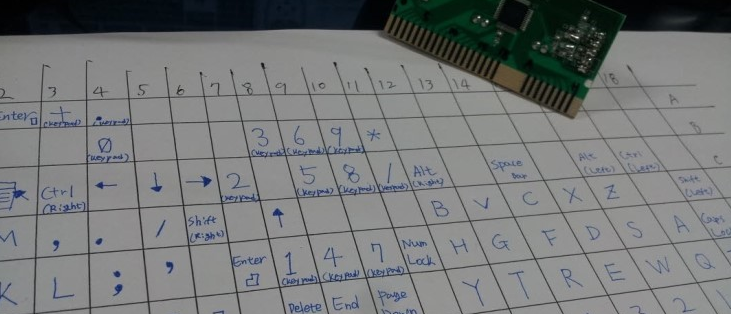 2 3 4 5 6 7 8 9 10 11 12 13 14 18
Enter + (keypad) . (keypad) A
0 (keypad) 3 (keypad) 6 (keypad) 9 (keypad) * B
Ctrl (Right) ← ↓ → 2 (keypad) 5 (keypad) 8 (keypad) / (keypad) Alt (Right) Space bar Alt (Left) Ctrl (Left) C
M , . / Shift (Right) ↑ B V C X Z Shift (Left)
K L ; ' Enter 1 (keypad) 4 (keypad) 7 (keypad) Num Lock H G F D S A Caps Lock
Delete End Page Down Y T R E W Q
3 2 1